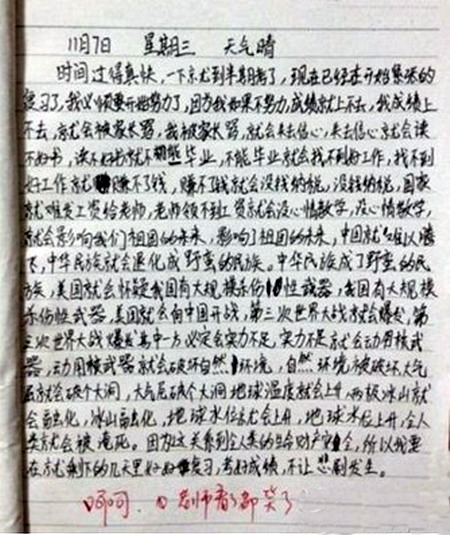 11月7日 星期三 天气晴
时间过得真快,一下就到半期考了,现在已经在开始紧张的
复习了,我必须要开始努力了,因为我如果不努力,成绩就上不去,我成绩上
不去,就会被家长骂,我被家长骂,就会失去信心,失去信心就会读
不好书,读不好书就不能毕业,不能毕业就会找不到好工作,找不到
好工作就赚不了钱,赚不了钱就会没钱纳税,没钱纳税,国家
就难发工资给老师,老师领不到工资就会没心情教学,没心情教学,
就会影响我们祖国的未来,影响了祖国的未来,中国就难以腾
飞,中华民族就会退化成野蛮的民族。中华民族成了野蛮的民
族,美国就会怀疑我国有大规模杀伤性武器,我国有大规模
杀伤性武器,美国就会向中国开战,第三次世界大战就会爆发,第
三次世界大战爆发其中一方必定会实力不足,实力不足就会动用核武
器,动用核武器就会破坏自然环境,自然环境被破坏,大气
层就会破个大洞,大气层破个大洞地球温度就会上升,两极冰山就
会融化,冰山融化,地球水位就会上升,地球水位上升,全人
类就会被淹死。因为这关系到全人类的生命财产安全,所以我要
在就剩下的几天里好好复习,考好成绩,不让悲剧发生。
呵呵,老师看了都笑了